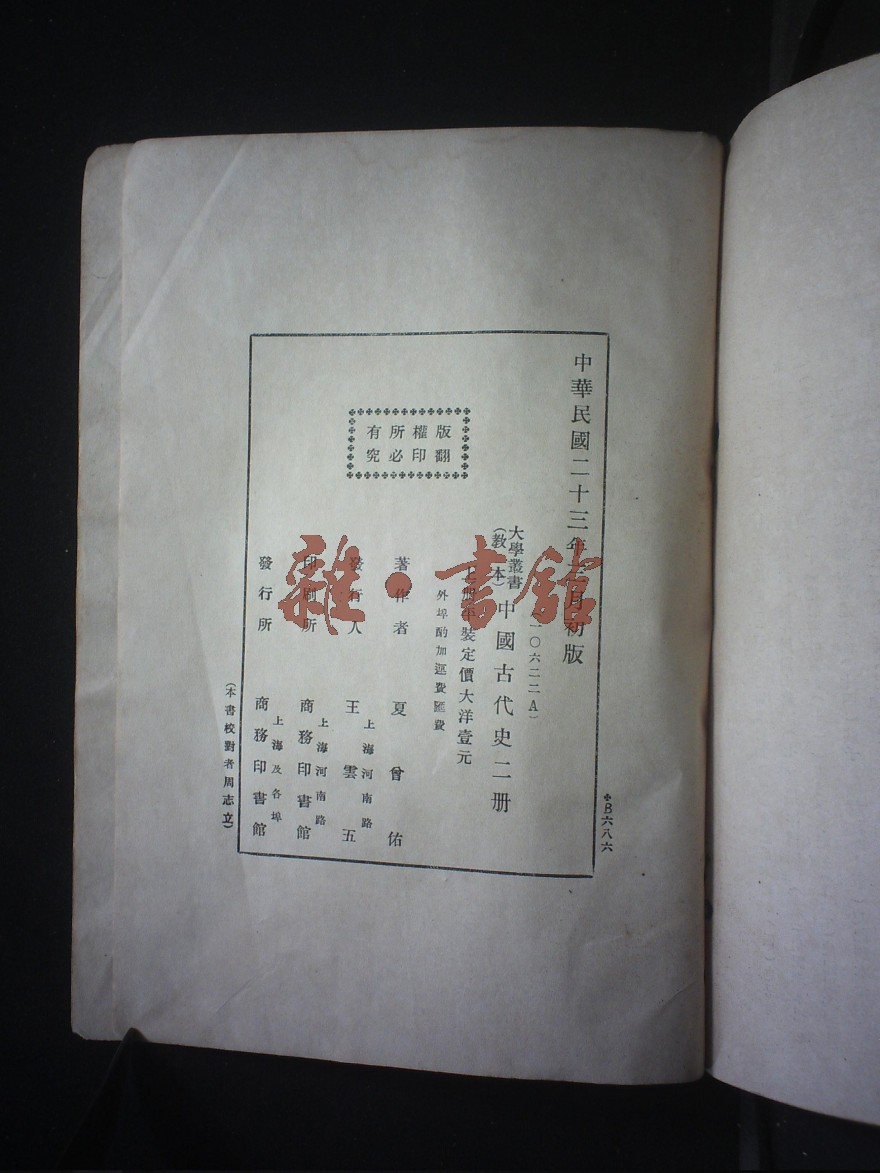 中華民國二十三年 月初版
✣B六八六
大學叢書
(教 本)
中國古代史二册
一〇六二二A)
册平裝定價大洋壹元
外埠酌加運費匯費
版權所有
翻印必究
著作者 夏曾佑
發行人 王雲五
上海河南路
印刷所 商務印書館
上海河南路
發行所 商務印書館
上海及各埠
(本書校對者周志立)
雜·書館